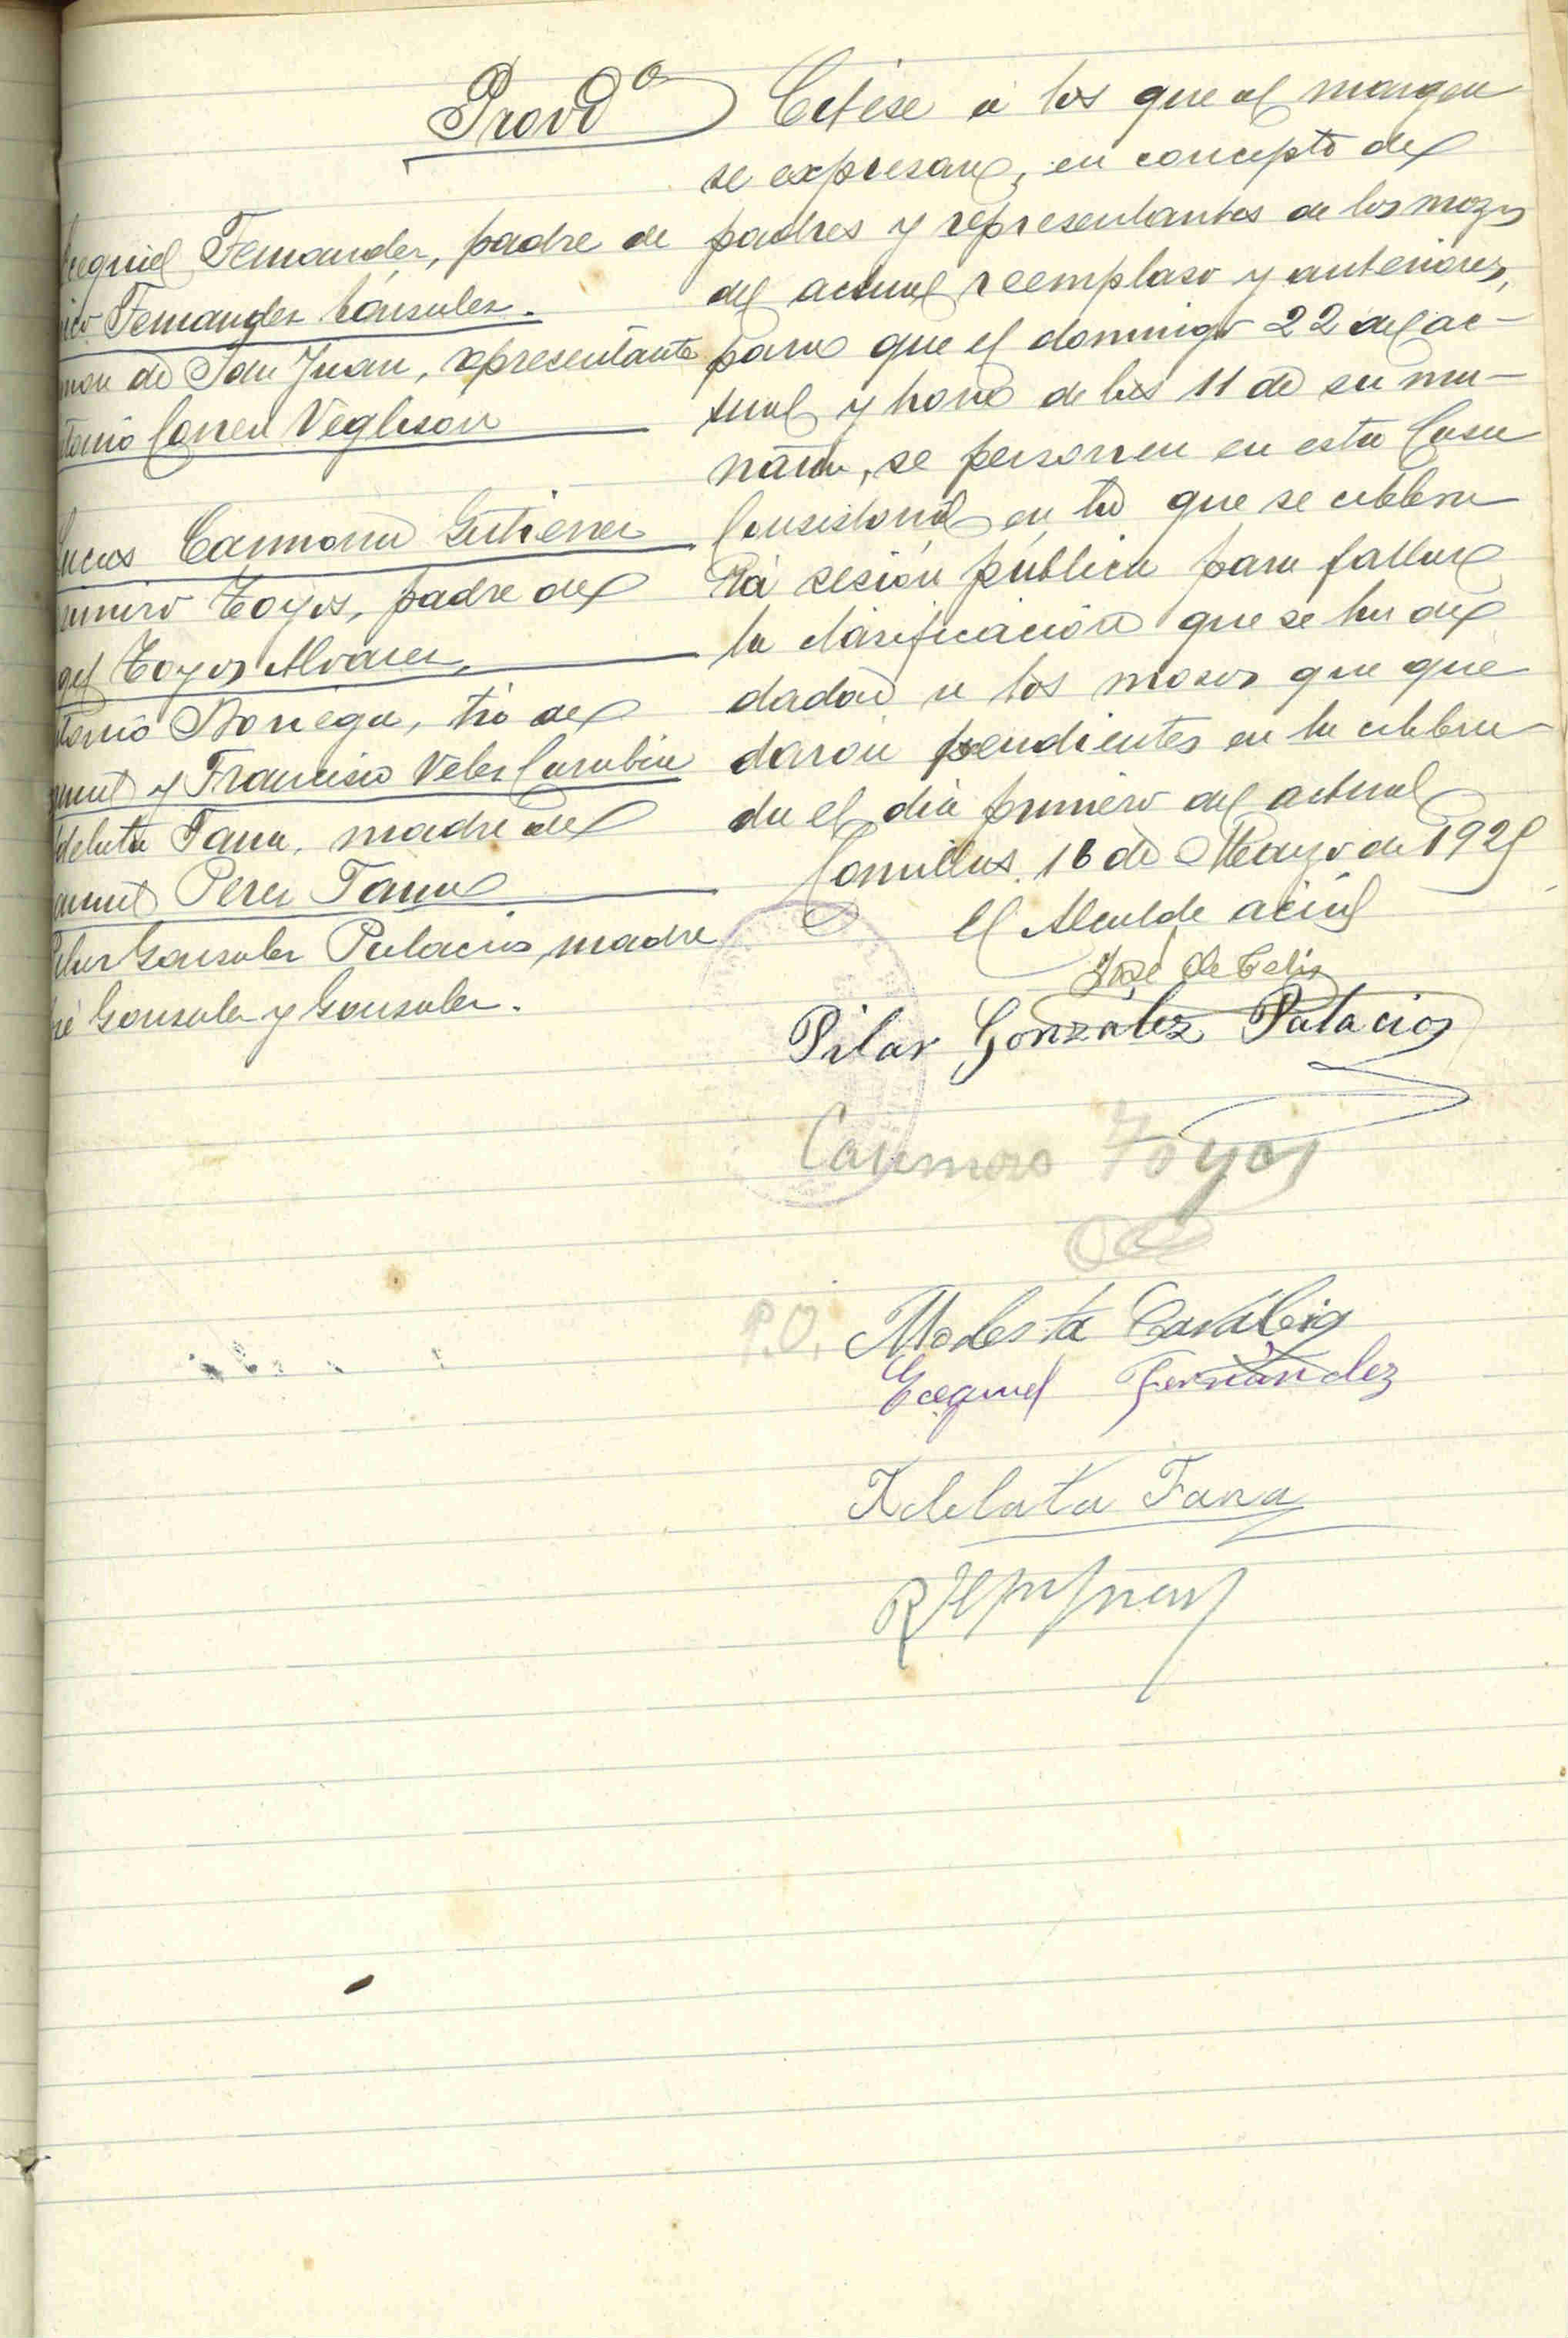 Provdª Citése a los que al margen
se expresan, en concepto de
padres y representantes de los mozos
del actual reemplaso y anteriores,
para que el domingo 22 del ac-
tual y hora de las 11 de su ma-
ñana, se personen en esta Casa
Consistorial en la que se celebra
rá sesión pública para fallar
la clasificación que se ha de
dadar a los mosos que que
daron pendientes en la celebra
da el dia primero del actual
Comillas 18 de Mayo de 192
El Alcalde
José de Celis
Ecequiel Fernandez, padre de
Fernandez Gonsalez.
de San Juan, representante
Correa
Carmona Gutierrez
Toyos, padre de
Toyos Alvarez,
Noriega, tio de
y Francisco Velez Carabia
Fana, madre de
Perez Fana
Pilar Gonsalez Palacios, madre
Gonsalez y Gonsalez.
Pilar González Palacios
Casimiro Toyos
P.O. Modesta Carabia
Ecequiel Fernández
Idelata Fana